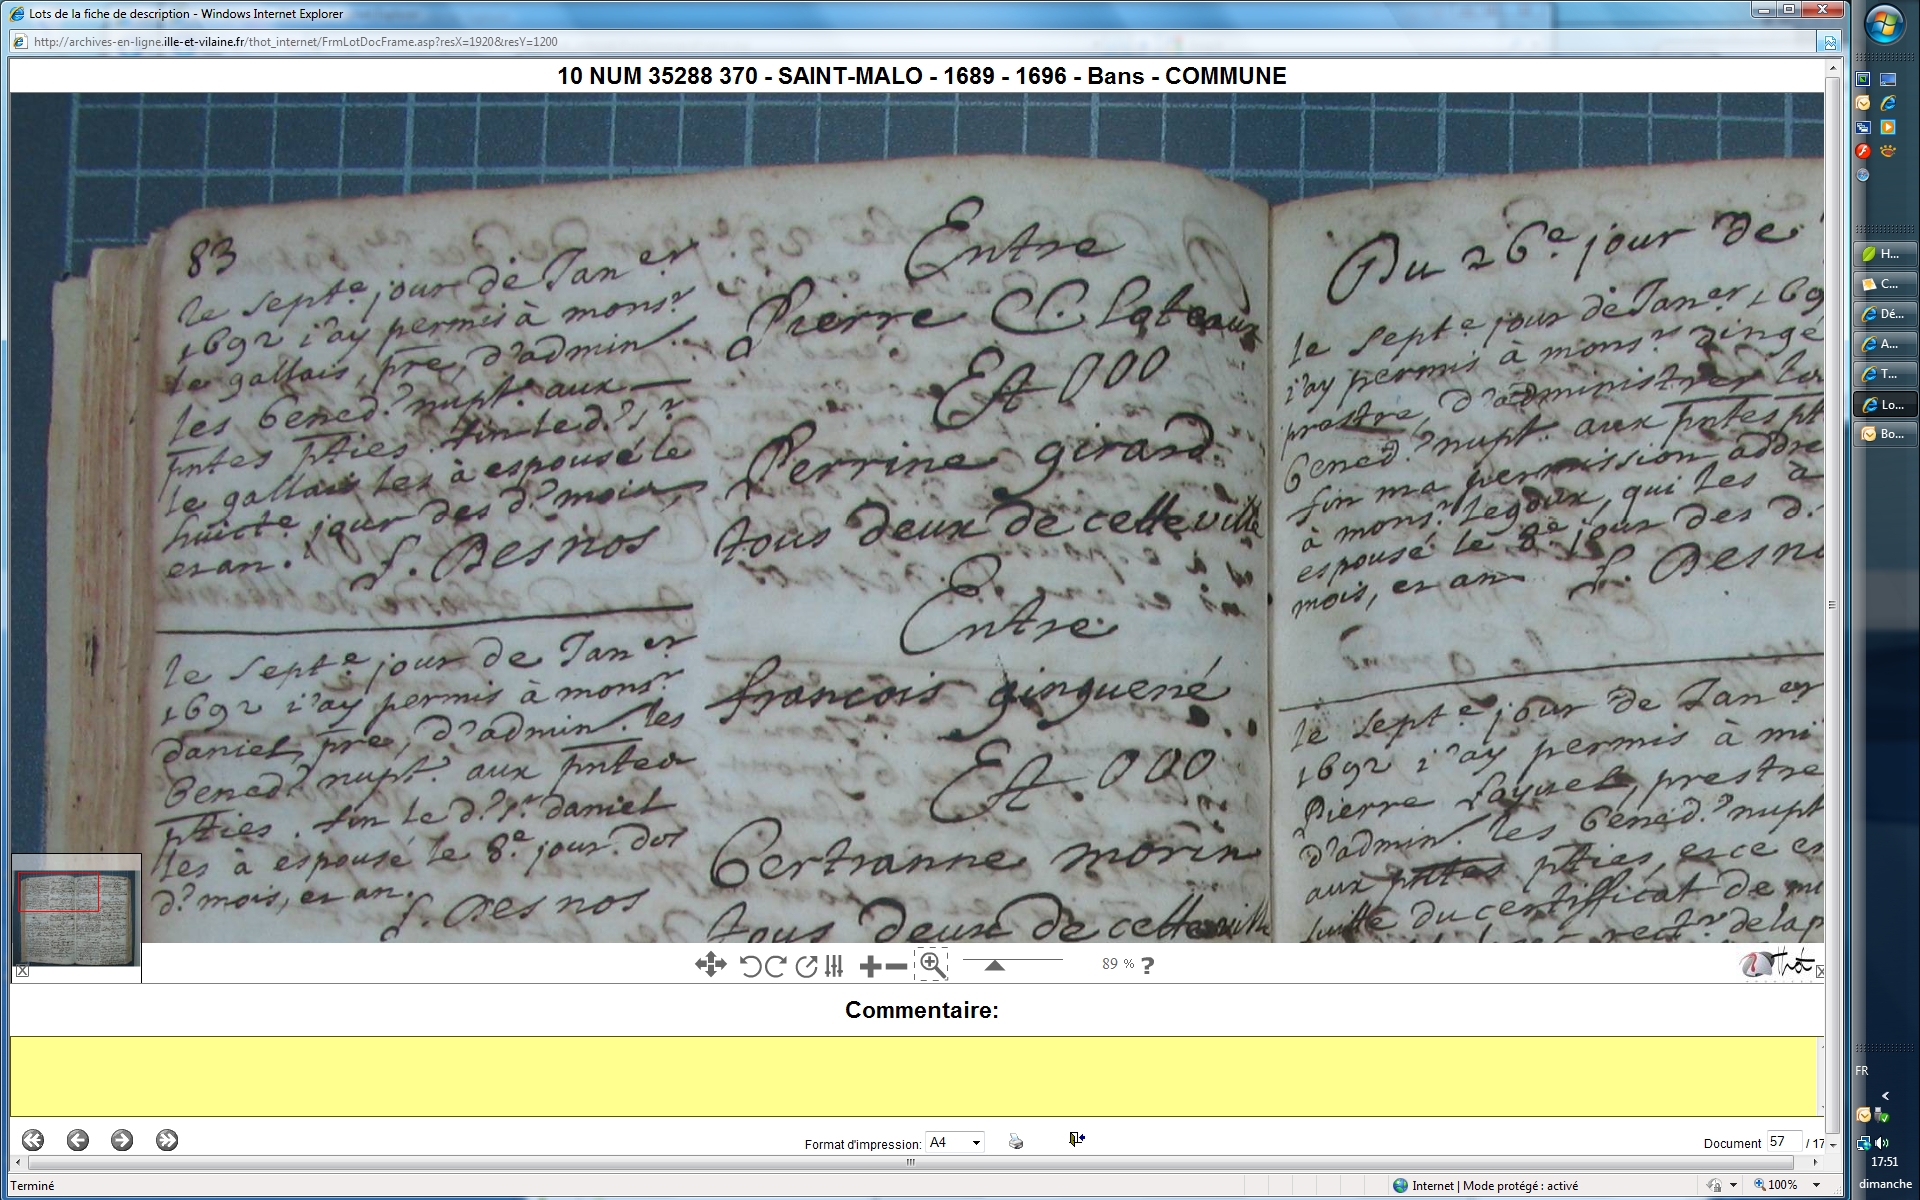 Lots de la fiche de description - Windows Internet Explorer
http://archives-en-ligne.ille-et-vilaine.fr/thot_internet/FrmLotDocFrame.asp?resX=1920&resY=1200
10 NUM 35288 370 - SAINT-MALO - 1689 - 1696 - Bans - COMMUNE
83
le sept.e jour de Jan er
1692 i'ay permis à mons.r
le gallais, pre, d'admin.
les bened.? nupt. aux
pntes ptties. fin le d.? s.r
le gallais les à espousé le
huict.e jour des d.? mois,
et an. f. Desnos
le sept.e jour de Jan er
1692 i'ay permis à mons.r
daniel, pre, d'admin. les
bened.? nupt. aux pntes
ptties. fin le d.? s.r daniel
les à espousé le 8.e jour des
d.? mois, et an.
f. Desnos
Entre
Pierre C. lateaux
Et 000
Perrine girard
tous deux de cette ville
Entre
francois ginguené
Et. 000
Bertranne morin
tous deux de cette ville
Du 26.e jour de
le sept.e jour de Jan er 169
i'ay permis à mons.r dingé
prestre, d'administrer
bened.? nupt. aux pntes
fin ma permission addre
à mons.r legoux, qui les à
espousé le 8.e jour des d.
mois, et an f. Desno
le sept.e jour de Jan er
1692 i'ay permis à
Pierre prestre
d'admin. les bened.? nupt
aux pntes ptties, et ce en
suitte du certifficat de
rect.r de la p
89 % ?
Thot
Commentaire:
Format d'impression: A4
Document 57 / 17
Terminé
Internet | Mode protégé : activé
100%
H...
C...
Dé...
A...
T...
Lo...
Bo...
FR
17:51
dimanche